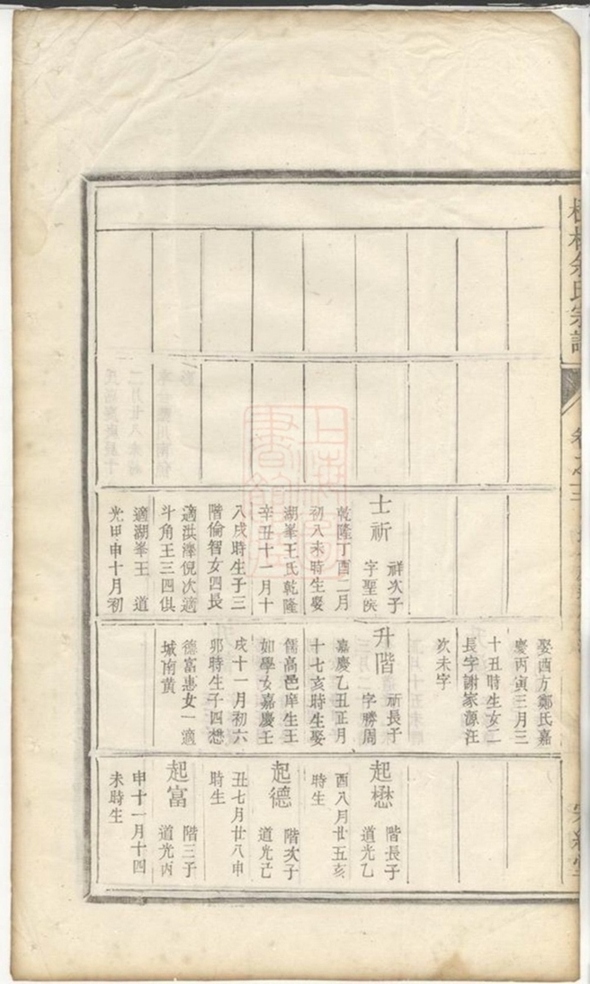 余氏宗譜
娶酉方鄭氏嘉
慶丙寅三月三
十丑時生女二
長字謝家源汪
次未字
士祈
祥次子
字聖
乾隆丁酉二月
初八未時生娶
湖峯王氏乾隆
辛丑十一月十
八戌時生子三
階倫智女四長
適洪濼倪次適
斗角王三四俱
適湖峯王 道
光甲申十月初
升階
祈長子
字勝周
嘉慶乙丑正月
十七亥時生娶
儒高邑庠生王
如學女嘉慶壬
戌十一月初六
卯時生子四懋
德富惠女一適
城南黄
起懋
階長子
道光乙
酉八月廿五亥
時生
起德
階次子
道光己
丑七月廿八申
時生
起富
階三子
道光丙
申十一月十四
未時生